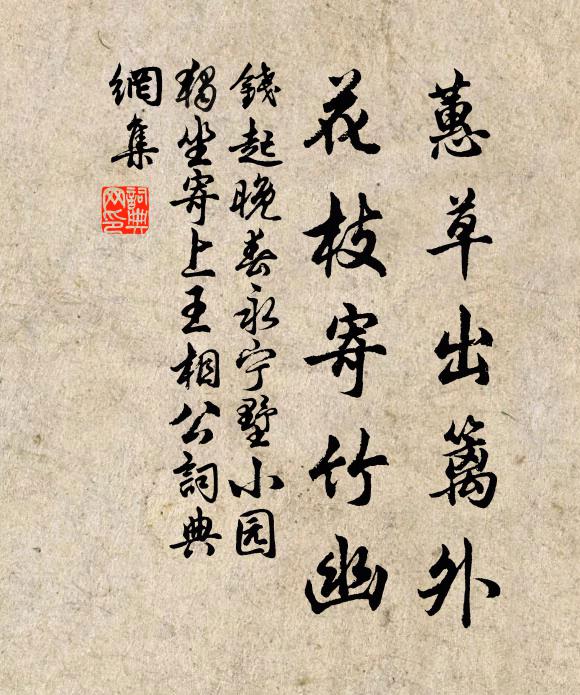 蕙草出篱外
花枝寄竹幽
錢起晚春永宁墅小园
獨坐寄上王相公詞典
網集
詞典
网印